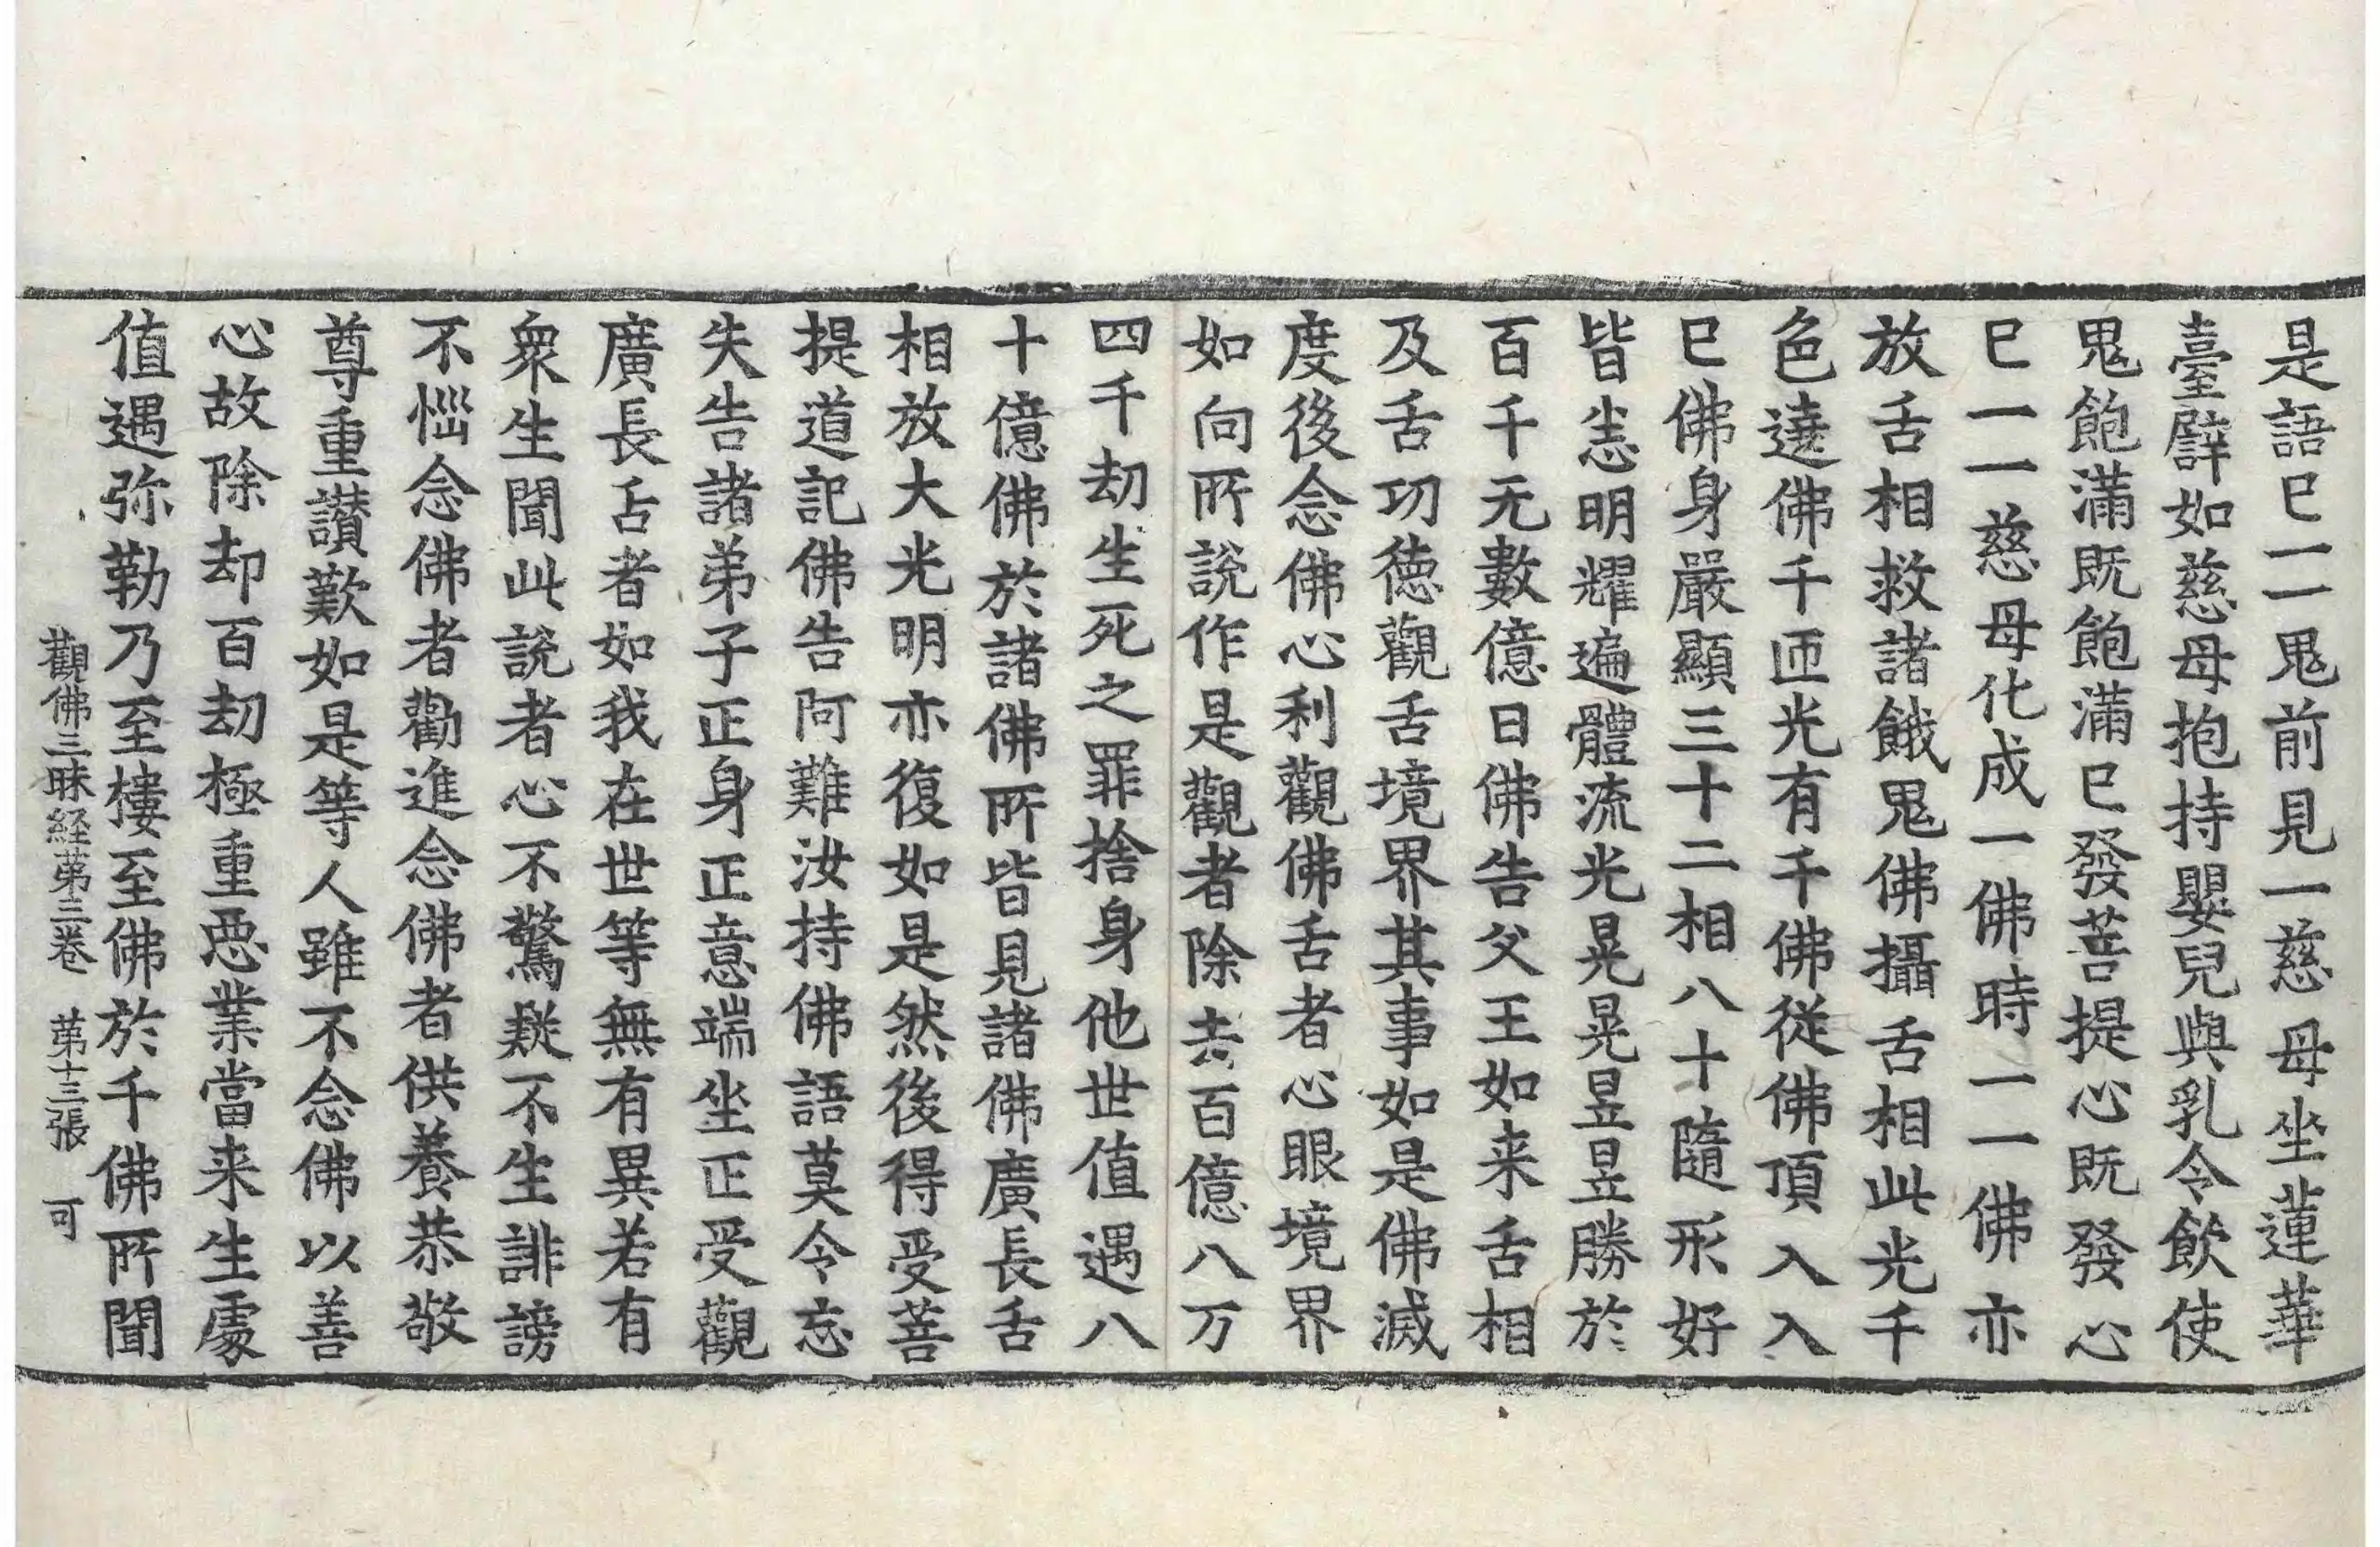 是語已一一鬼前見一慈母坐蓮華
臺辟如慈母抱持嬰兒與乳令飲使
鬼飽滿既飽滿已發菩提心既發心
已一一慈母化成一佛時一一佛亦
放舌相救諸餓鬼佛攝舌相此光千
色遶佛千匝光有千佛從佛頂入入
已佛身嚴顯三十二相八十隨形好
皆悉明耀遍體流光晃晃昱昱勝於
百千无數億日佛告父王如来舌相
及舌功徳觀舌境界其事如是佛滅
度後念佛心利觀佛舌者心眼境界
如向所說作是觀者除去百億八万
四千劫生死之罪捨身他世值遇八
十億佛於諸佛所皆見諸佛廣長舌
相放大光明亦復如是然後得受菩
提道記佛告阿難汝持佛語莫令忘
失告諸弟子正身正意端坐正受觀
廣長舌者如我在世等無有異若有
衆生聞此說者心不驚疑不生誹謗
不惱念佛者勸進念佛者供養恭敬
尊重讃歎如是等人雖不念佛以善
心故除却百劫極重惡業當来生處
值遇弥勒乃至樓至佛於千佛所聞
觀佛三昧経第三卷　第十三張　可